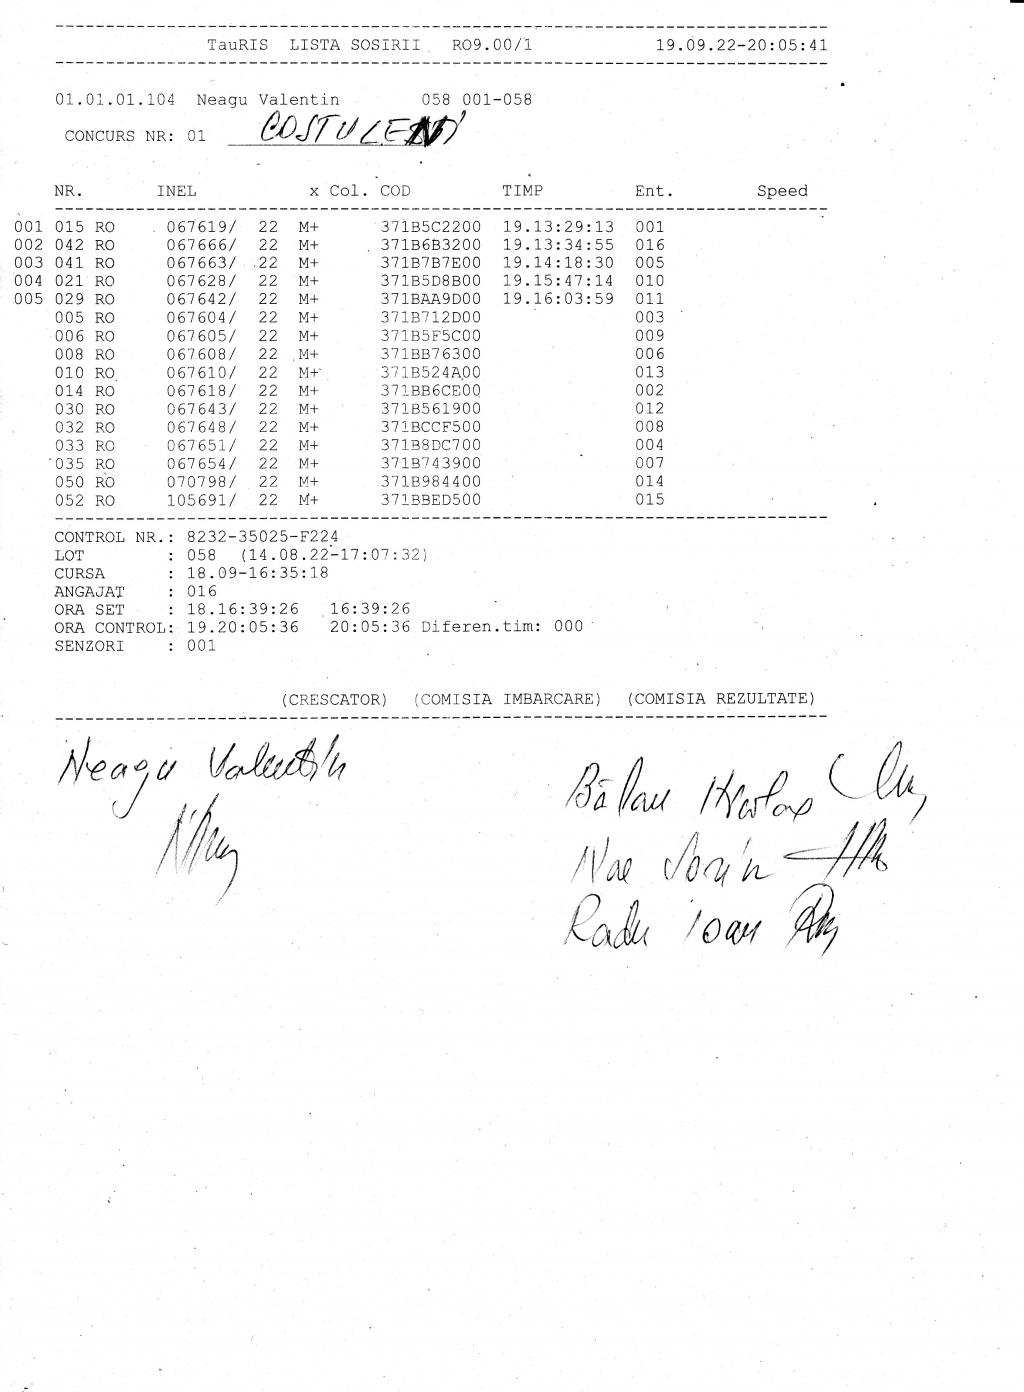 TauRIS LISTA SOSIRII RO9.00/1 19.09.22-20:05:41
01.01.01.104 Neagu Valentin 058 001-058
CONCURS NR: 01 COSTULENI
NR. INEL x Col. COD TIMP Ent. Speed
001 015 RO 067619/ 22 M+ 371B5C2200 19.13:29:13 001
002 042 RO 067666/ 22 M+ 371B6B3200 19.13:34:55 016
003 041 RO 067663/ 22 M+ 371B7B7E00 19.14:18:30 005
004 021 RO 067628/ 22 M+ 371B5D8B00 19.15:47:14 010
005 029 RO 067642/ 22 M+ 371BAA9D00 19.16:03:59 011
005 RO 067604/ 22 M+ 371B712D00 003
006 RO 067605/ 22 M+ 371B5F5C00 009
008 RO 067608/ 22 M+ 371BB76300 006
010 RO 067610/ 22 M+ 371B524A00 013
014 RO 067618/ 22 M+ 371BB6CE00 002
030 RO 067643/ 22 M+ 371B561900 012
032 RO 067648/ 22 M+ 371BCCF500 008
033 RO 067651/ 22 M+ 371B8DC700 004
035 RO 067654/ 22 M+ 371B743900 007
050 RO 070798/ 22 M+ 371B984400 014
052 RO 105691/ 22 M+ 371BBED500 015
CONTROL NR.: 8232-35025-F224
LOT : 058 (14.08.22-17:07:32)
CURSA : 18.09-16:35:18
ANGAJAT : 016
ORA SET : 18.16:39:26 16:39:26
ORA CONTROL: 19.20:05:36 20:05:36 Diferen.tim: 000
SENZORI : 001
(CRESCATOR) (COMISIA IMBARCARE) (COMISIA REZULTATE)
Neagu Valentin
Bălau
Nae Sorin
Radu Ioan